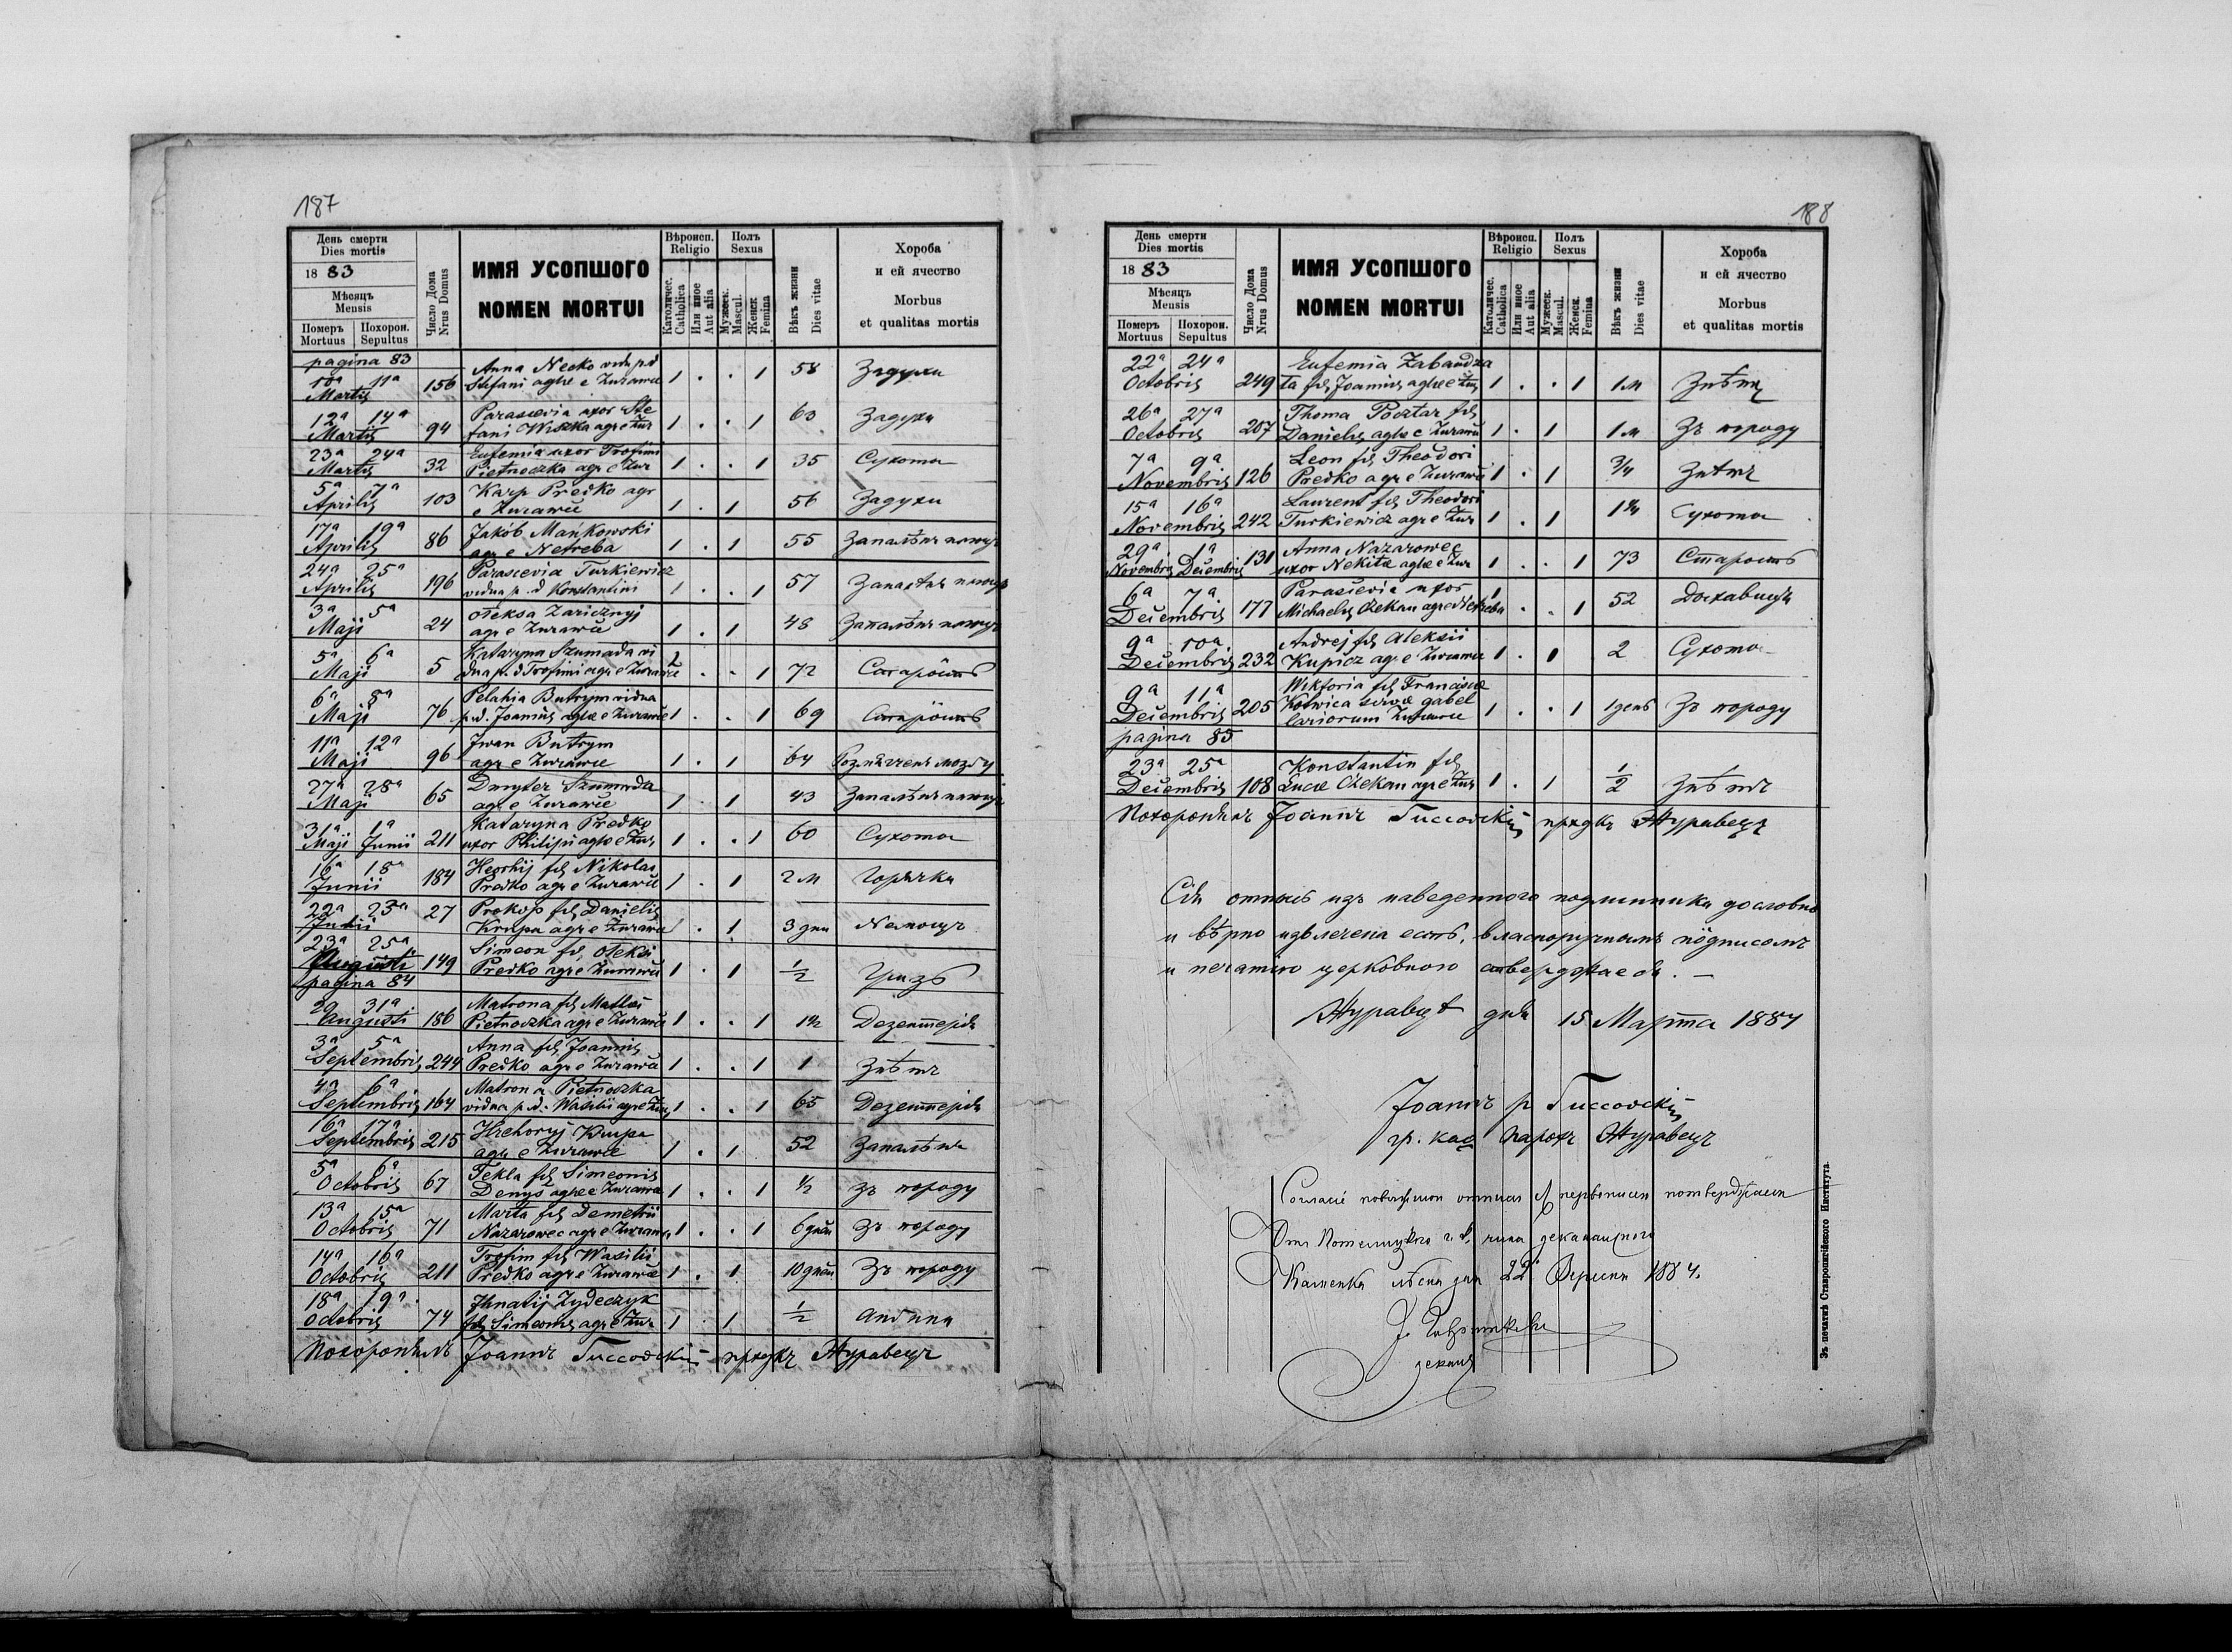 187
День смерти
Dies mortis
1883
Мѣсяцъ
Mensis
Померъ Похорон.
Mortuus Sepultus
Число Дома
Nrus Domus
ИМЯ УСОПШОГО
NOMEN MORTUI
Вѣроисп.
Religio
Католичес.
Catholica
Или иное
Aut alia
Полъ
Sexus
Мужеск.
Mascul.
Женск.
Femina
Вѣкъ жизни
Dies vitae
Хороба
и ей ячество
Morbus
et qualitas mortis
pagina 83
10ª 11ª Martii 156 Anna Necko vidu p.d
Stefani aglae e Żurawce 1 . . 1 58 Задуха
12ª 14ª Martii 94 Parascevia uxor Ste
fani Wiszka agr e Żur 1 . . 1 63 Задуха
23ª 24ª Martii 32 Eufemia uxor Trofimi
Pietnoczka agr e Żur 1 . . 1 35 Сухота
5ª 7ª Aprilis 103 Karp Predko agr
e Żurawce 1 . 1 56 Задуха
17ª 19ª Aprilis 86 Jakób Mańkowski
agr e Netreba 1 . 1 55 Запалѣнє
24ª 25ª Aprilis 196 Parascevia Turkiewicz
vidua p.d Konstantini 1 . . 1 57 Запалѣнє
3ª 5ª Maji 24 Oleksa Zaricznyj
agr e Żurawce 1 . 1 48 Запалѣнє
5ª 6ª Maji 5 Kataryna Szumada vi
dua p.d Trofimi agr e Żurawce 1 . . 1 72 Старôсть
6ª 8ª Maji 76 Pelahia Butrym vidua
p.d. Joannis aglae e Żurawce 1 . . 1 69 Старôсть
11ª 12ª Maji 96 Jwan Butrym
agr e Żurawce 1 . 1 64 мозгу
27ª 28ª Maji 65 Dmyter Szumada
agr e Żurawce 1 . 1 43 Запалѣнє
31ª Maji 1ª Junii 211 Kataryna Predko
uxor Philipi aglae e Żur 1 . . 1 60 Сухота
16ª 18ª Junii 184 Heorhij fil Nikolai
Predko agr e Żurawce 1 . 1 2 м Горячка
22ª 23ª Julii 27 Prokop fil Danielis
Krupa agr e Żurawce 1 . 1 3 дни Немощь
23ª 25ª Augusti 149 Simeon fil Oleksi
Predko agr e Żurawce 1 . 1 ½ Гризь
pagina 84
29 31ª Augusti 186 Matrona fil Mathei
Pietnoczka agr e Żurawce 1 . . 1 1½ Дезентерія
3ª 5ª Septembris 249 Anna fil Joannis
Predko agr e Żurawce 1 . . 1 1 Знѣтъ
4ª 6ª Septembris 164 Matrona Pietnoczka
vidua p.d. Wasilii agr e Żur 1 . . 1 65 Дезентерія
16ª 17ª Septembris 215 Hrehoryj Krupa
agr e Żurawce 1 . 1 52 Запалѣнє
5ª 6ª Octobris 67 Tekla fil Simeonis
Denys aglae e Żurawce 1 . . 1 ½ Зъ породу
13ª 15ª Octobris 71 Marta fil Demetrii
Nazarowec agr e Żuraw 1 . . 1 6 днéй Зъ породу
14ª 16ª Octobris 211 Trofim fil Wasilii
Predko agr e Żurawce 1 . 1 10 днéй Зъ породу
18ª 19ª Octobris 74 Jhnatij Zydeczyk
fil Simeonis agr e Żur 1 . 1 ½ Ангина
Похоронилъ Іоаннъ Гиссовскій прхдкъ Журавець
188
День смерти
Dies mortis
1883
Мѣсяцъ
Mensis
Померъ Похорон.
Mortuus Sepultus
Число Дома
Nrus Domus
ИМЯ УСОПШОГО
NOMEN MORTUI
Вѣроисп.
Religio
Католичес.
Catholica
Или иное
Aut alia
Полъ
Sexus
Мужеск.
Mascul.
Женск.
Femina
Вѣкъ жизни
Dies vitae
Хороба
и ей ячество
Morbus
et qualitas mortis
22ª 24ª Octobris 249 Eufemia Zabandza
ta fil Joannis aglae e Żur 1 . . 1 1 м Знѣтъ
26ª 27ª Octobris 207 Thoma Pocztar fil
Danielis aglae e Żurawce 1 . 1 1 м Зъ породу
7ª 9ª Novembris 126 Leon fil Theodori
Predko agr e Żurawce 1 . 1 ¾ Знѣтъ
15ª 16ª Novembris 242 Laurent fil Theodori
Turkiewicz agr e Żur 1 . 1 1¼ Сухота
29ª Novembris 1ª Decembris 131 Anna Nazarowec
uxor Nekitæ aglae e Żur 1 . . 1 73 Старость
6ª 7ª Decembris 177 Parascevia uxor
Michaelis Czekan agr e Netreba 1 . . 1 52
9ª 10ª Decembris 232 Andrej fil Aleksii
Kupicz agr e Żurawce 1 . 1 2 Сухота
9ª 11ª Decembris 205 Wiktoria fil Franciscæ
Kotwica servæ gabel
lariorum Żurawce 1 . . 1 1 день Зъ породу
pagina 85
23ª 25ª Decembris 108 Konstantin fil
Lucæ Czekan agr e Żur 1 . 1 ½ Знѣтъ
Похоронилъ Іоаннъ Гиссовскій прхдкъ Журавець
Сія отпись изъ наведенного подлинника дословно
и вѣрно извлечена есть, власноручнымъ пôдписомъ
и печатію церковною стверджаеся. —
Журавцѣ дня 15 Марта 1884
Іоаннъ р Гиссовскій
гр. каѳ парохъ Журавець
Согласіе повысшои отписи съ первописом потверджаеся
Отъ Потелицкого г. к. чина деканацкого
Каменка лѣсна дня 22 Вересня 1884.
деканъ
Зъ печатнѣ Ставропигійского Института.